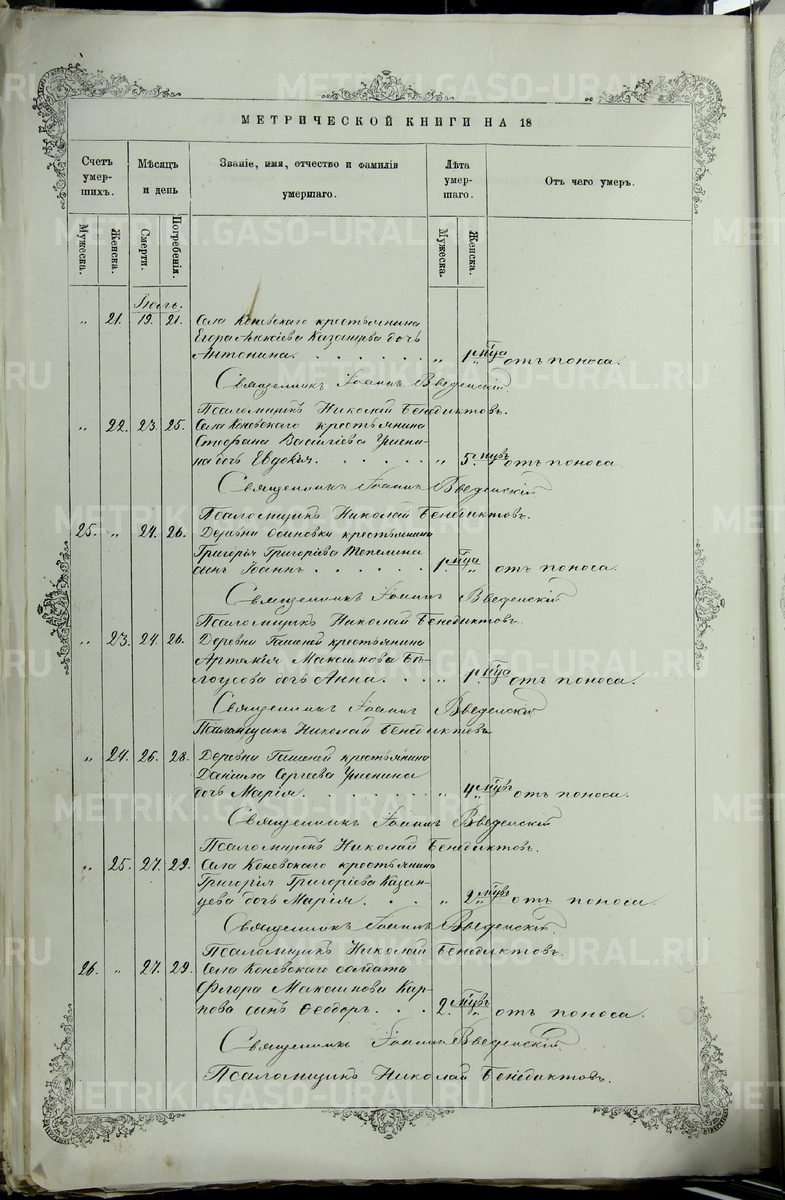 МЕТРИЧЕСКОЙ КНИГИ НА 18
Счетъ умер-шихъ.
Мѣсяцъ и день
Званіе, имя, отчество и фамилія умершаго.
Лѣта умер-шаго.
Отъ чего умеръ.
Мужеска.
Женска.
Смерти.
Погребенія.
Мужеска.
Женска.
Іюль.
„ 21. 19. 21. Села Коневскаго крестьянина
Егора Алексіева Казанцева дочь
Антонина. „ 1 мца отъ поноса.
Священникъ Іоаннъ Введенскій.
Псаломщикъ Николай Бенедиктовъ.
„ 22. 23. 25. Села Коневскаго крестьянина
Стефана Василіева
на дочь Евдокія. „ 5. отъ поноса
Священникъ Іоаннъ Введенскій
Псаломщикъ Николай Бенедиктовъ.
25. „ 24. 26. Деревни Осиновки крестьянина
Григорія Григоріева Тепелина
сынъ Іоаннъ. 1. мца „ отъ поноса.
Священникъ Іоаннъ Введенскій
Псаломщикъ Николай Бенедиктовъ.
„ 23. 24. 26. Деревни крестьянина
Артемія Максимова Бѣ-
лоусова дочь Анна. „ 1. мца отъ поноса.
Священникъ Іоаннъ Введенскій
Псаломщикъ Николай Бенедиктовъ
„ 24. 26. 28. Деревни крестьянина
Даніила Сергеева
дочь Марія. „ 4 отъ поноса.
Священникъ Іоаннъ Введенскій
Псаломщикъ Николай Бенедиктовъ.
„ 25. 27. 29. Села Коневскаго крестьянина
Григорія Григоріева Казан-
цева дочь Марія. „ 2 отъ поноса.
Священникъ Іоаннъ Введенскій.
Псаломщикъ Николай Бенедиктовъ.
26. „ 27. 29. Села Коневскаго солдата
Флора Максимова Кар-
пова сынъ Феодоръ. 2. „ отъ поноса.
Священникъ Іоаннъ Введенскій.
Псаломщикъ Николай Бенедиктовъ.
METRIKI.GASO-URAL.RU